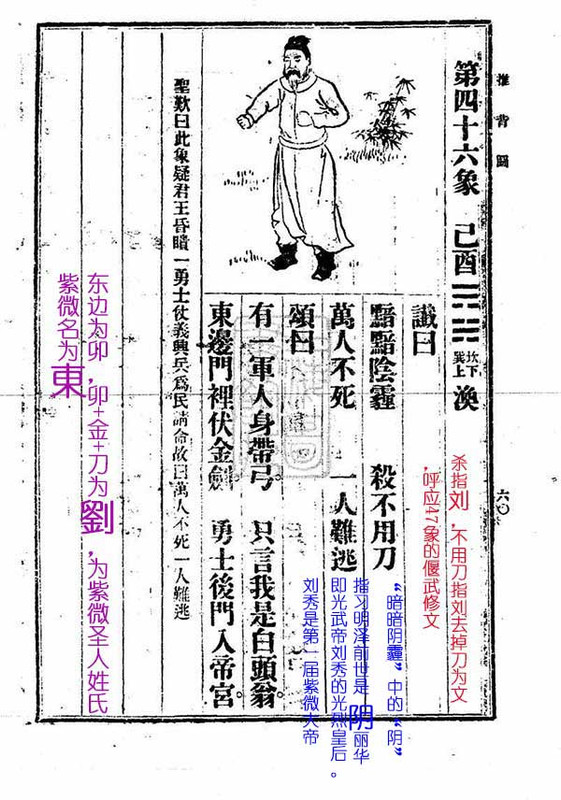 推背圖
六〇
第四十六象 己酉 坎下 巽上 渙
讖曰
黯黯陰霾 殺不用刀
萬人不死 一人難逃
頌曰
有一軍人身帶弓。 只言我是白頭翁。
東邊門裡伏金劍。 勇士後門入帝宮。
聖歎曰此象疑君王昏瞶一勇士仗義興兵爲民請命故曰萬人不死一人難逃
杀指刘，不用刀指刘去掉刀为文
，呼应47象的偃武修文
“暗暗阴霾”中的“阴”
指习明泽前世是阴丽华
即光武帝刘秀的光烈皇后。
刘秀是第一届紫微大帝
东边为卯，卯+金+刀为劉，为紫微圣人姓氏
紫微名为東